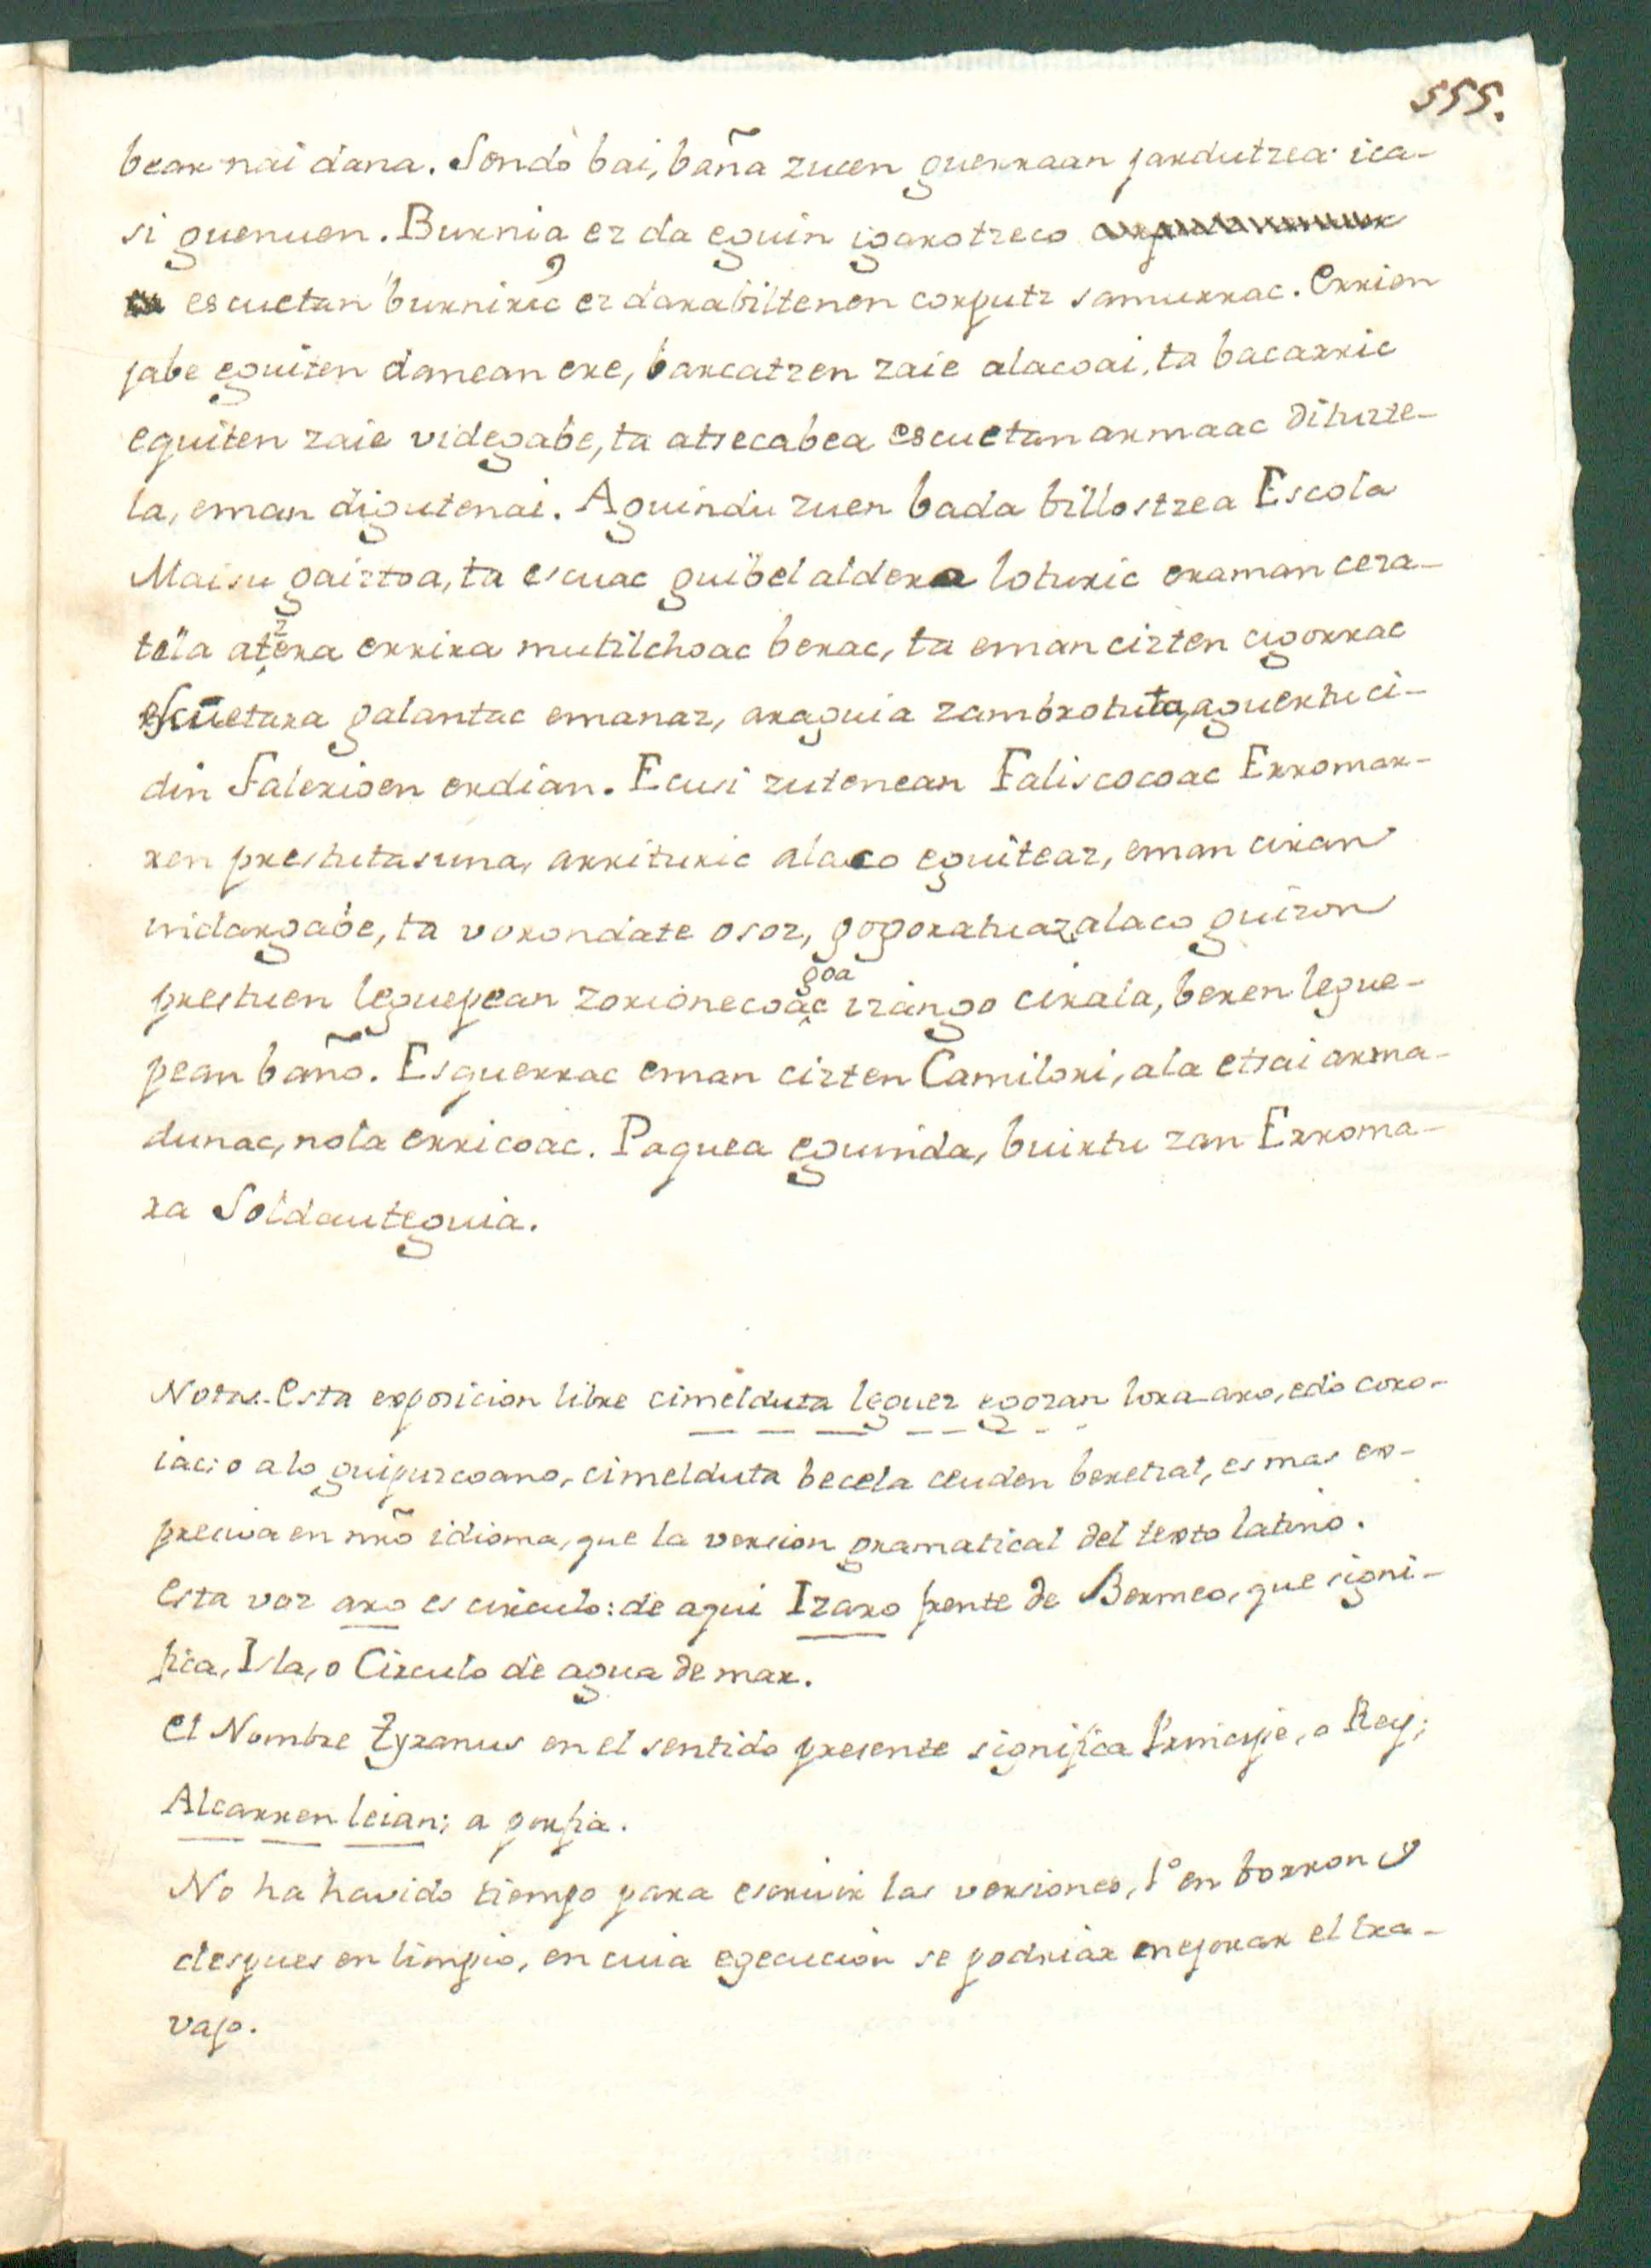 555.
bear nai dana. Sendo bai, baña zucen guerraan jardutzea ica-
si guenuen. Burnia ez da eguin igarotzeco
escuetan burniric ez darabiltenen corputz samurrac. Errien
jabe eguiten danean ere, barcatzen zaie alacoai, ta bacarric
eguiten zaie videgabe, ta atsecabea escuetan armaac dituzte-
la, eman digutenai. Aguindu zuen bada billostzea Escola
Maisu gaiztoa, ta escuac guibel aldera loturic eraman ceza-
tela atzera errira mutilchoac berac, ta eman cizten cigorrac
escuetara galantac emanaz, araguia zambrotuta, aguertu ci-
din Falerioen erdian. Ecusi zutenean Faliscocoac Erromar-
ren prestutasuna, arrituric alaco eguiteaz, eman ciran
vidargabe, ta vorondate osoz, gogoratuaz alaco guizon
prestuen leguepean zorionecoagoac izango cirala, beren legue-
pean baño. Esquerrac eman cizten Camilori, ala etsai arma-
dunac, nola erricoac. Paquea eguinda, buirtu zan Erroma-
ra Soldauteguia.
Notas. Esta exposicion libre cimelduta leguez egozan lora-aro, edo coro-
iac; o a lo guipuzcoano, cimelduta becela ceuden beretzat, es mas ex-
presiva en nrõ idioma, que la version gramatical del texto latino.
Esta voz aro es circulo: de aqui Izaro frente de Bermeo, que signi-
fica, Isla, o Circulo de agua de mar.
El Nombre Tyranus en el sentido presente significa Principe, o Rey;
Alcarren leian; a porfia.
No ha havido tiempo para escrivir las versiones, 1º en borron y
despues en limpio, en cuia egecucion se podriar mejorar el tra-
vajo.